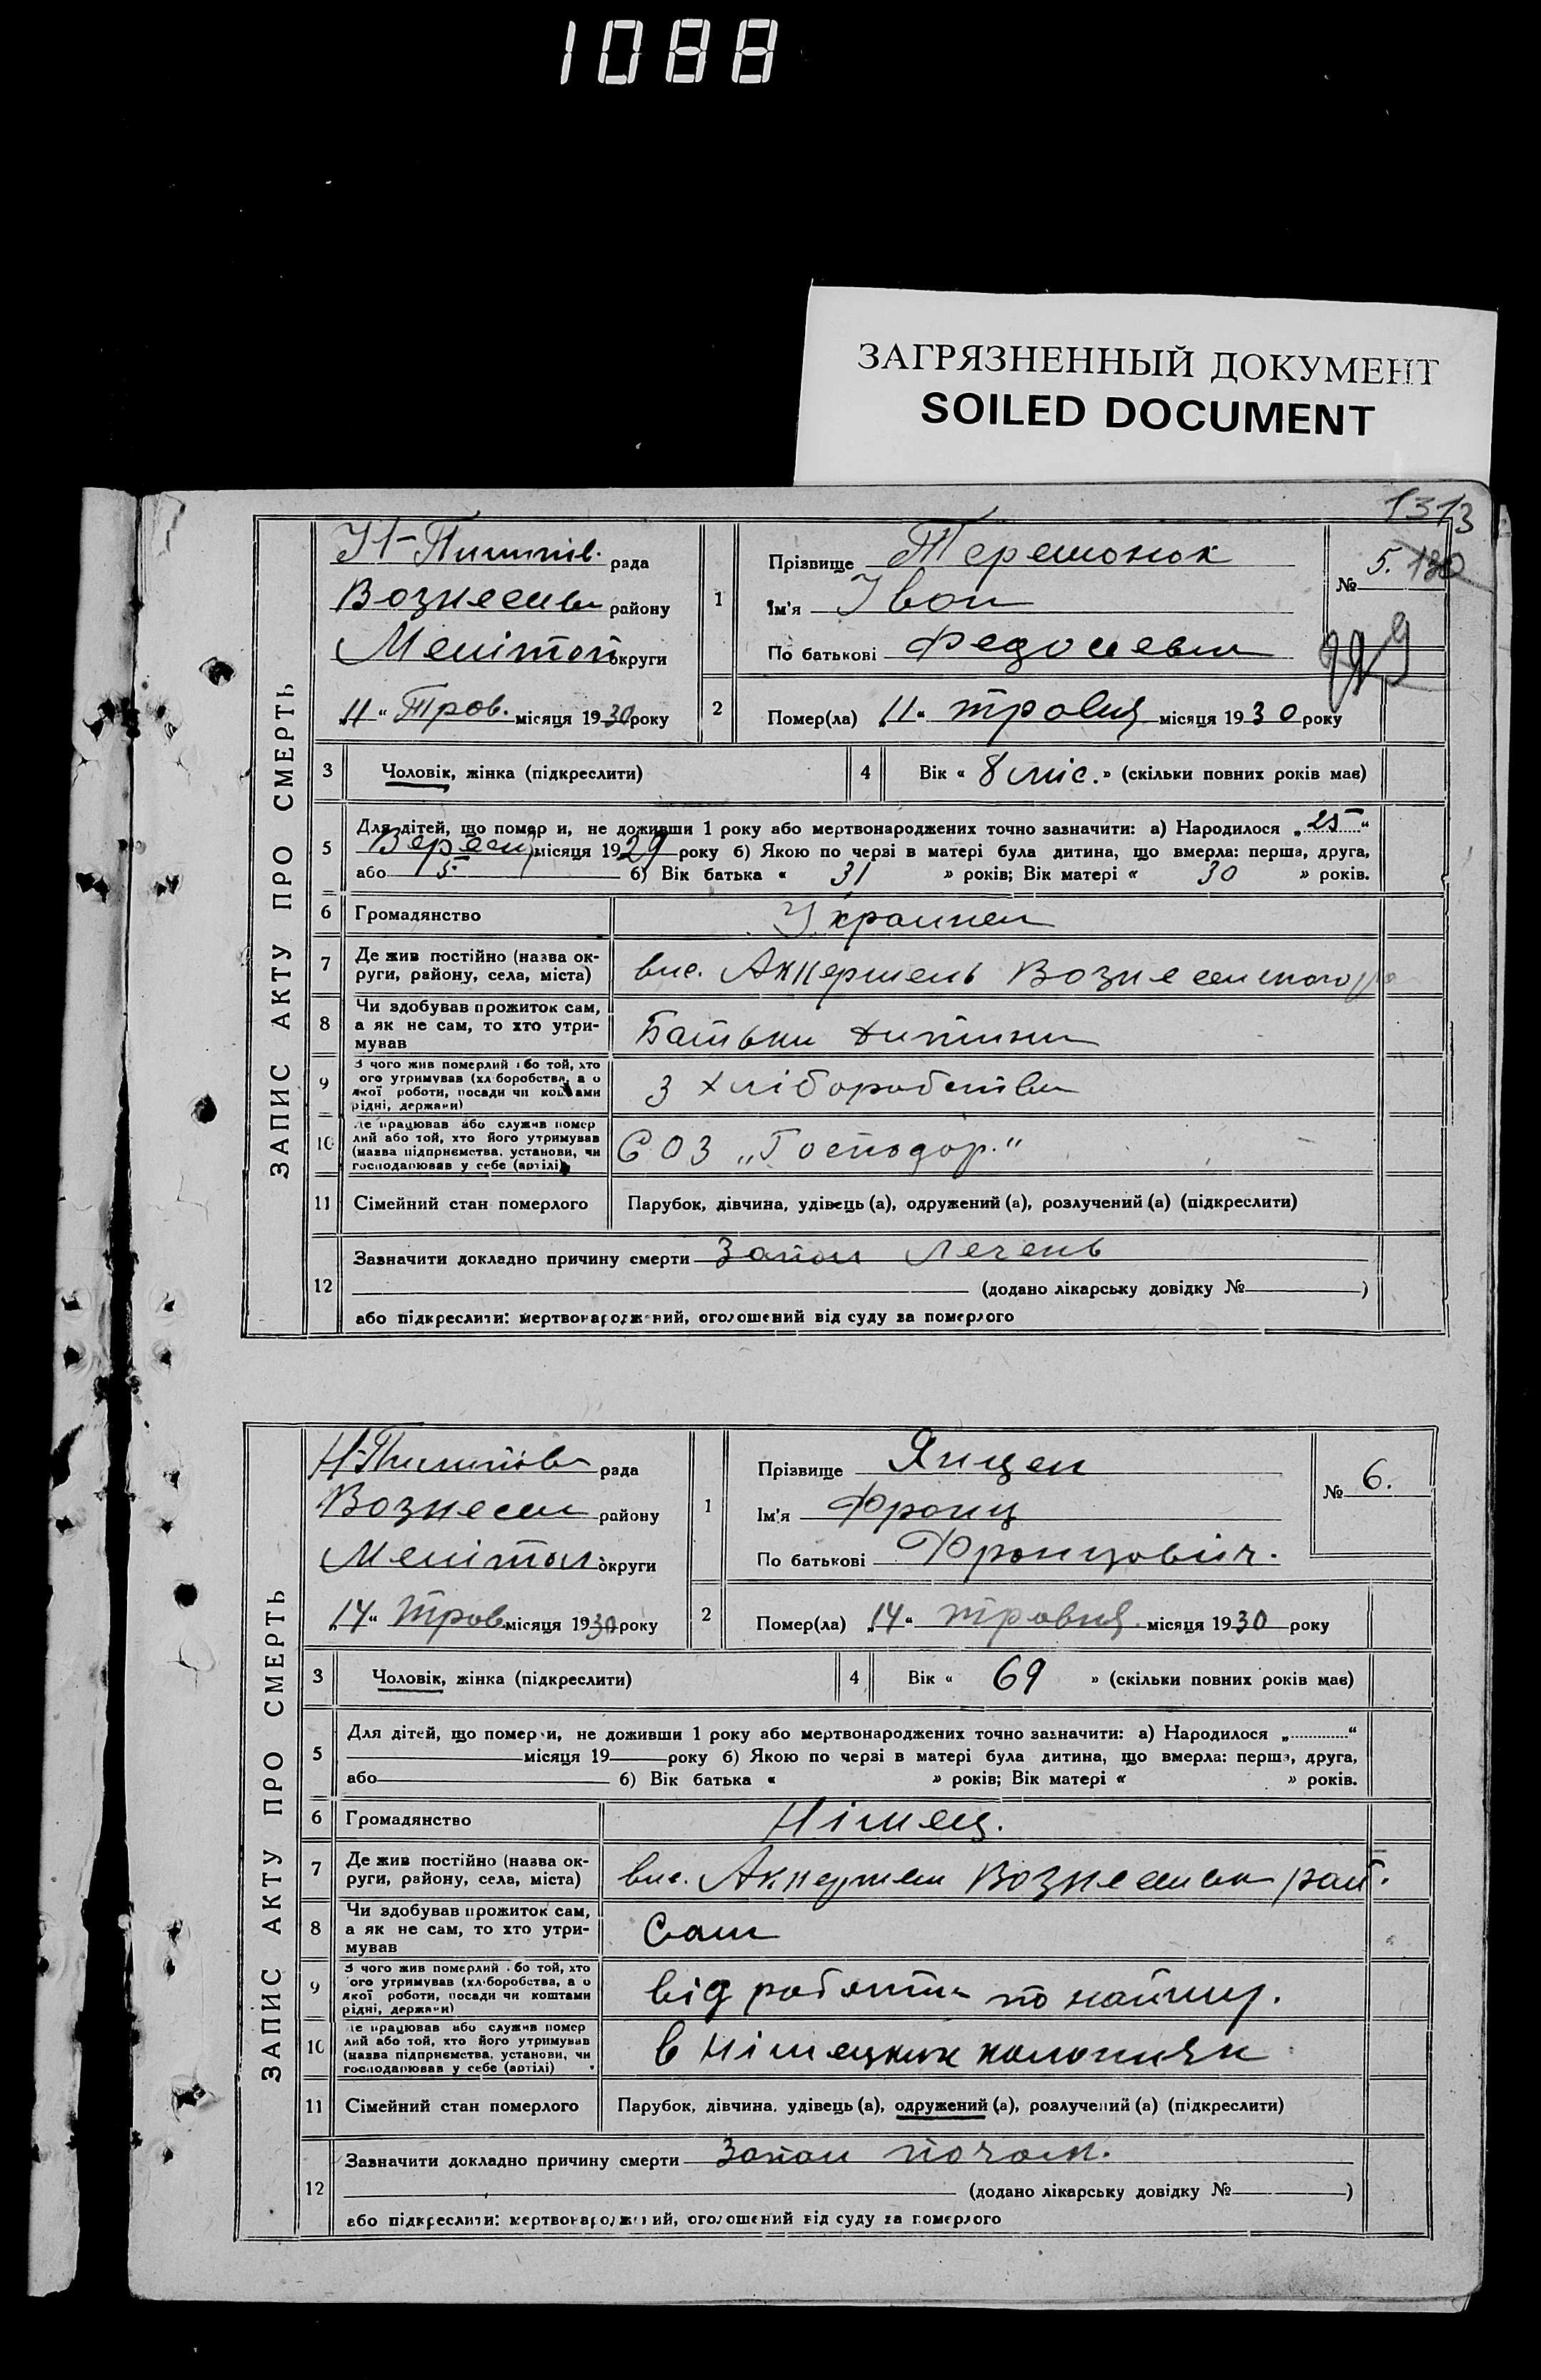 1088
ЗАГРЯЗНЕННЫЙ ДОКУМЕНТ
SOILED DOCUMENT
1313
ЗАПИС АКТУ ПРО СМЕРТЬ
рада
района
району
Мелітоп округи
„11“ Трав. місяця 1930 року
1
Прізвище
Ім'я Іван
По батькові
№ 5. 130
229
2
Помер(ла) „11“ травня місяця 1930 року
3 Чоловік, жінка (підкреслити)
4 Вік « 8 міс. » (скільки повних років має)
5 Для дітей, що померли, не доживши 1 року або мертвонароджених точно зазначити: а) Народилося „25“
Вересня місяця 1929 року б) Якою по черзі в матері була дитина, що вмерла: перша, друга,
або 5. б) Вік батька « 31 » років; Вік матері « 30 » років.
6 Громадянство Украинец
7 Де жив постійно (назва ок-
руги, району, села, міста) вис. Аккермень Вознесенского
8 Чи здобував прожиток сам,
а як не сам, то хто утри-
мував Батьки дитини
9 З чого жив померлий або той, хто
ого утримував (хліборобства, а о
якої роботи, посади чи коштами
рідні, держави) З хліборобства
10 Де працював або служив помер
лий або той, хто його утримував
(назва підприємства, установи, чи
господарював у себе (артілі) СОЗ „Господар.“
11 Сімейний стан померлого Парубок, дівчина, удівець (а), одружений (а), розлучений (а) (підкреслити)
12 Зазначити докладно причину смерти Запал легень
(додано лікарську довідку № )
або підкреслити: мертвонароджений, оголошений від суду за померлого
ЗАПИС АКТУ ПРО СМЕРТЬ
рада
Вознесен району
Мелітоп округи
„14“ Трав місяця 1930 року
1
Прізвище Янцен
Ім'я Франц
По батькові Францовіч.
№ 6.
2
Помер(ла) „14“ травня місяця 1930 року
3 Чоловік, жінка (підкреслити)
4 Вік « 69 » (скільки повних років має)
5 Для дітей, що померли, не доживши 1 року або мертвонароджених точно зазначити: а) Народилося „ “
місяця 19 року б) Якою по черзі в матері була дитина, що вмерла: перша, друга,
або б) Вік батька « » років; Вік матері « » років.
6 Громадянство Німец.
7 Де жив постійно (назва ок-
руги, району, села, міста) вис. Аккермен Вознесенск рай.
8 Чи здобував прожиток сам,
а як не сам, то хто утри-
мував Сам
9 З чого жив померлий або той, хто
ого утримував (хліборобства, а о
якої роботи, посади чи коштами
рідні, держави) від работи по найму.
10 Де працював або служив помер
лий або той, хто його утримував
(назва підприємства, установи, чи
господарював у себе (артілі) в німецких
11 Сімейний стан померлого Парубок, дівчина, удівець (а), одружений (а), розлучений (а) (підкреслити)
12 Зазначити докладно причину смерти Запал
(додано лікарську довідку № )
або підкреслити: мертвонароджений, оголошений від суду за померлого